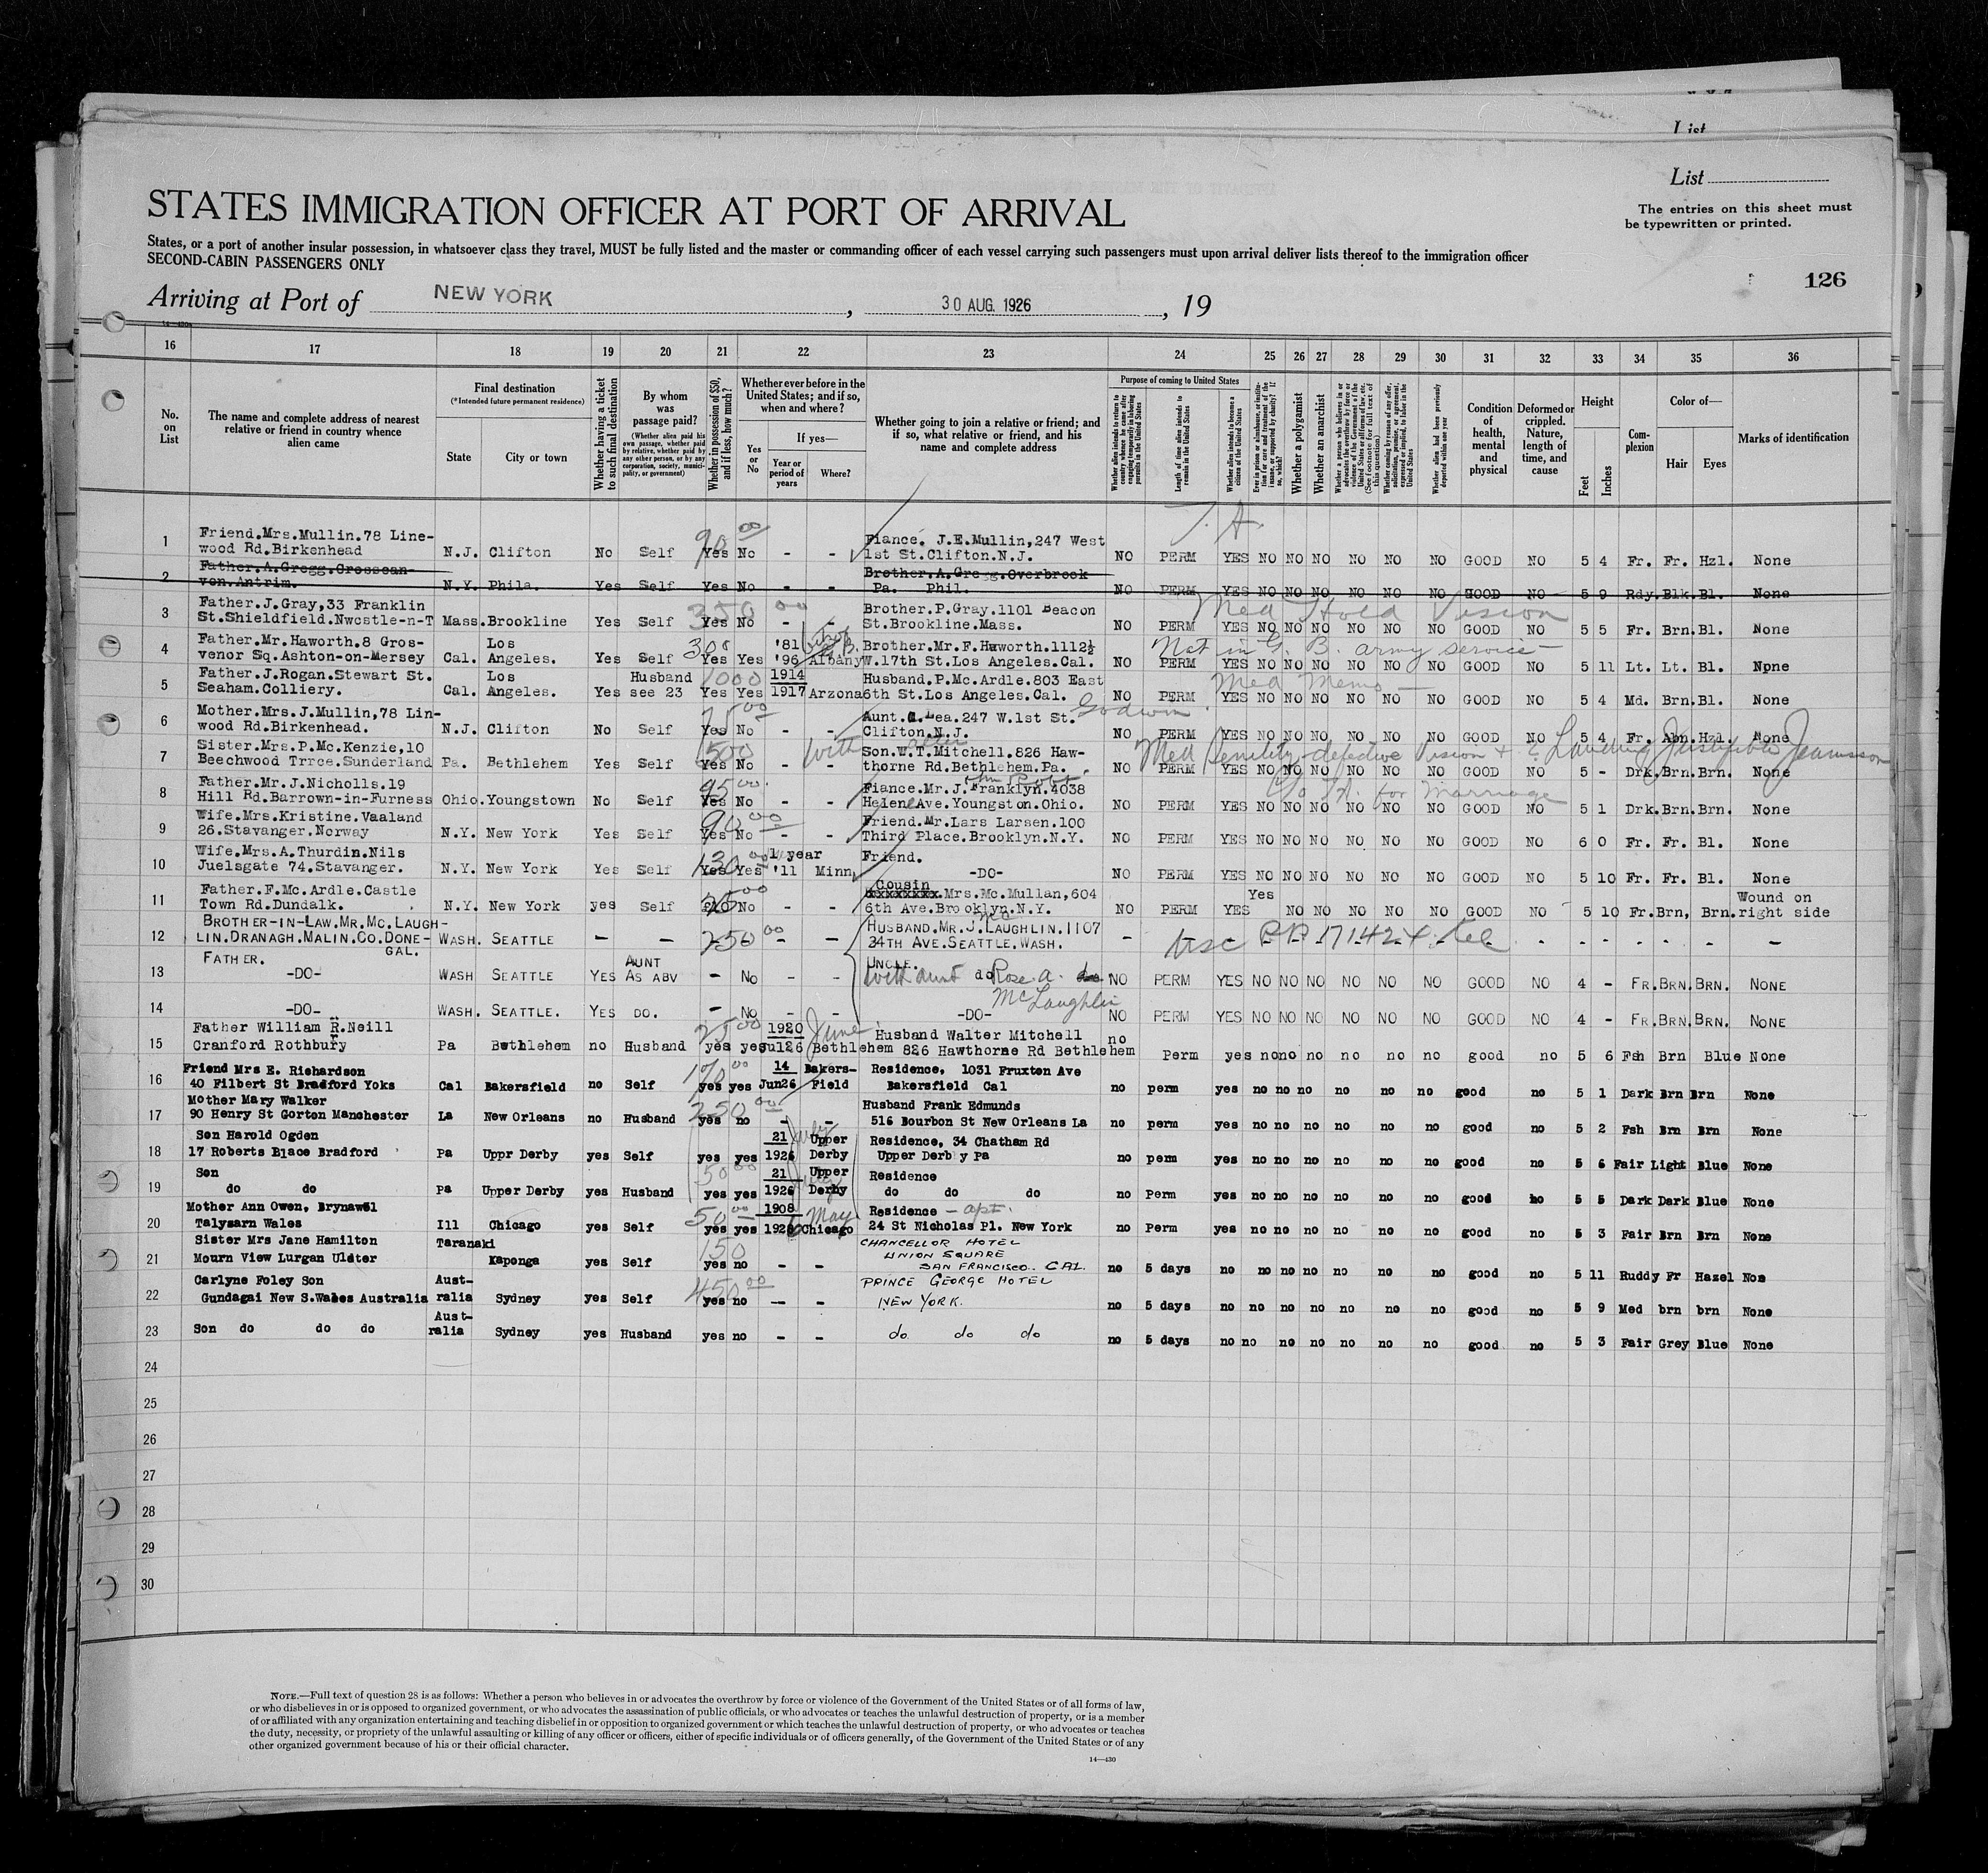 List
List
The entries on this sheet must
be typewritten or printed.
STATES IMMIGRATION OFFICER AT PORT OF ARRIVAL
States, or a port of another insular possession, in whatsoever class they travel, MUST be fully listed and the master or commanding officer of each vessel carrying such passengers must upon arrival deliver lists thereof to the immigration officer
SECOND-CABIN PASSENGERS ONLY
126
Arriving at Port of NEW YORK , 30 AUG. 1926 , 19
16 17 18 19 20 21 22 23 24 25 26 27 28 29 30 31 32 33 34 35 36
No. on List
The name and complete address of nearest relative or friend in country whence alien came
Final destination
(*Intended future permanent residence)
State City or town
Whether having a ticket to such final destination
By whom was passage paid?
(Whether alien paid his own passage, whether paid by relative, whether paid by any other person, or by any corporation, society, municipality, or government)
Whether in possession of $50, and if less, how much?
Whether ever before in the United States; and if so, when and where?
Yes or No
If yes—
Year or period of years
Where?
Whether going to join a relative or friend; and if so, what relative or friend, and his name and complete address
Purpose of coming to United States
Whether alien intends to return to country whence he came after engaging temporarily in laboring pursuits in the United States
Length of time alien intends to remain in the United States
Whether alien intends to become a citizen of the United States
Ever in prison or almshouse, or institution for care and treatment of the insane, or supported by charity? If so, which?
Whether a polygamist
Whether an anarchist
Whether a person who believes in or advocates the overthrow by force or violence of the Government of the United States or all forms of law, etc. (See footnote for full text of this question)
Whether coming by reason of any offer, solicitation, promise, or agreement, expressed or implied, to labor in the United States
Whether alien had been previously deported within one year
Condition of health, mental and physical
Deformed or crippled. Nature, length of time, and cause
Height
Feet Inches
Complexion
Color of—
Hair Eyes
Marks of identification
T. A.
1 Friend.Mrs.Mullin.78 Line-
wood Rd.Birkenhead N.J. Clifton No Self 90 00 Yes No - - Fiance. J.E.Mullin,247 West
1st St.Clifton.N.J. NO PERM YES NO NO NO NO NO NO GOOD NO 5 4 Fr. Fr. Hzl. None
2 Father.A.Gregg.Crossean-
von.Antrim. N.Y. Phila. Yes Self Yes No - - Brother.A.Gregg.Overbrook
Pa. Phil. NO PERM YES NO NO NO NO NO NO GOOD NO 5 9 Rdy.Blk.Bl. None
Med Hold Vision
3 Father.J.Gray,33 Franklin
St.Shieldfield.Nwcstle-n-T Mass.Brookline Yes Self 350 00 Yes No - - Brother.P.Gray.1101 Beacon
St.Brookline.Mass. NO PERM YES NO NO NO NO NO NO GOOD NO 5 5 Fr. Brn.Bl. None
Not in G. B. army service
4 Father.Mr.Haworth.8 Gros-
venor Sq.Ashton-on-Mersey Cal. Los Angeles. Yes Self 300 Yes Yes '81 '96 Albany Brother.Mr.F.Haworth.1112½
W.17th St.Los Angeles.Cal. NO PERM YES NO NO NO NO NO NO GOOD NO 5 11 Lt. Lt. Bl. None
Med Memo
5 Father.J.Rogan.Stewart St.
Seaham.Colliery. Cal. Los Angeles. Yes Husband see 23 1000 Yes Yes 1914 1917 Arzona Husband.P.Mc.Ardle.803 East
6th St.Los Angeles.Cal. NO PERM YES NO NO NO NO NO NO GOOD NO 5 4 Md. Brn.Bl. None
Godwin
6 Mother.Mrs.J.Mullin,78 Lin-
wood Rd.Birkenhead. N.J. Clifton No Self 75 00 Yes No - - Aunt. Lea.247 W.1st St.
Clifton.N.J. NO PERM YES NO NO NO NO NO NO GOOD NO 5 4 Fr. Abn.Hzl. None
Med Senility defective Vision + Landing Justified
7 Sister.Mrs.P.Mc.Kenzie,10
Beechwood Trrce.Sunderland Pa. Bethlehem Yes Self 1500 Yes No - - with Son.W.T.Mitchell.826 Haw-
thorne Rd.Bethlehem.Pa. NO PERM YES NO NO NO NO NO NO GOOD NO 5 - Drk.Brn.Brn. None
for Marriage
8 Father.Mr.J.Nicholls.19
Hill Rd.Barrown-in-Furness Ohio.Youngstown No Self 95 00 Yes No - - Fiance.Mr.J.Franklyn.4038
HeleneAve.Youngston.Ohio. NO PERM YES NO NO NO NO NO NO GOOD NO 5 1 Drk.Brn.Brn. None
9 Wife.Mrs.Kristine.Vaaland
26.Stavanger.Norway N.Y. New York Yes Self 90 00 Yes No - - Friend.Mr.Lars Larsen.100
Third Place.Brooklyn.N.Y. NO PERM YES NO NO NO NO NO NO GOOD NO 6 0 Fr. Fr. Bl. None
10 Wife.Mrs.A.Thurdin.Nils
Juelsgate 74.Stavanger. N.Y. New York Yes Self 130 00 Yes Yes 1 year '11 Minn Friend.
-DO- NO PERM YES NO NO NO NO NO NO GOOD NO 5 10 Fr. Fr. Bl. None
11 Father.F.Mc.Ardle.Castle
Town Rd.Dundalk. N.Y. New York yes Self 25 00 No - - Cousin .Mrs.Mc.Mullan,604
6th Ave.Brooklyn.N.Y. NO PERM YES Yes NO NO NO NO NO GOOD NO 5 10 Fr.Brn, Brn. Wound on right side
12 BROTHER-IN-LAW.MR.MC.LAUGH-
LIN.DRANAGH.MALIN.CO.DONE-
GAL. WASH. SEATTLE - - 250 00 - - HUSBAND.MR.J.Mc LAUGHLIN.1107
34TH AVE.SEATTLE.WASH. - USC PP 171424
13 FATHER.
-DO- WASH SEATTLE YES AUNT AS ABV - NO - - UNCLE.
with aunt do Rose. a. McLaughlin NO PERM YES NO NO NO NO NO NO GOOD NO 4 - FR.BRN.BRN. NONE
14 -DO- WASH. SEATTLE. YES DO. - NO - - -DO- NO PERM YES NO NO NO NO NO NO GOOD NO 4 - FR.BRN.BRN. NONE
15 Father William R.Neill
Cranford Rothbury Pa Bethlehem no Husband 25 00 yes yes 1920 Jul26 June Bethlehem Husband Walter Mitchell
826 Hawthorne Rd Bethlehem no Perm yes no no no no no no good no 5 6 Fsh Brn Blue None
16 Friend Mrs E. Richardson
40 Filbert St Bradford Yoks Cal Bakersfield no Self 170 00 yes yes 14 Jun26 Bakers-Field Residence, 1031 Fruxton Ave
Bakersfield Cal no perm yes no no no no no no good no 5 1 Dark Brn Brn None
17 Mother Mary Walker
90 Henry St Gorton Manchester La New Orleans no Husband 250 00 yes no - - Husband Frank Edmunds
516 Bourbon St New Orleans La no perm yes no no no no no no good no 5 2 Fsh Brn Brn None
18 Son Harold Ogden
17 Roberts Blace Bradford Pa Uppr Derby yes Self yes yes 21 1926 Upper Derby Residence, 34 Chatham Rd
Upper Derby Pa no perm yes no no no no no no good no 5 6 Fair Light Blue None
19 Son
do do Pa Upper Derby yes Husband 150 00 yes yes 21 1926 Upper Derby Residence
do do do no Perm yes no no no no no no good no 5 5 Dark Dark Blue None
20 Mother Ann Owen, Brynawel
Talysarn Wales Ill Chicago yes Self 50 00 yes yes 1908 1926 May Chicago Residence - apt.
24 St Nicholas Pl. New York no Perm yes no no no no no no good no 5 3 Fair Brn Brn None
21 Sister Mrs Jane Hamilton
Mourn View Lurgan Ulster Taranaki Kaponga yes Self 150 yes no - - CHANCELLOR HOTEL
UNION SQUARE
SAN FRANCISCO. CAL. no 5 days no no no no no no no good no 5 11 Ruddy Fr Hazel Non
22 Carlyne Foley Son
Gundagai New S.Wales Australia Aust-ralia Sydney yes Self 450 00 yes no - - PRINCE GEORGE HOTEL
NEW YORK. no 5 days no no no no no no no good no 5 9 Med brn brn None
23 Son do do do Aust-ralia Sydney yes Husband yes no - - do do do no 5 days no no no no no no no good no 5 3 Fair Grey Blue None
24
25
26
27
28
29
30
NOTE.—Full text of question 28 is as follows: Whether a person who believes in or advocates the overthrow by force or violence of the Government of the United States or of all forms of law,
or who disbelieves in or is opposed to organized government, or who advocates the assassination of public officials, or who advocates or teaches the unlawful destruction of property, or is a member
of or affiliated with any organization entertaining and teaching disbelief in or opposition to organized government or which teaches the unlawful destruction of property, or who advocates or teaches
the duty, necessity, or propriety of the unlawful assaulting or killing of any officer or officers, either of specific individuals or of officers generally, of the Government of the United States or of any
other organized government because of his or their official character.
14—430